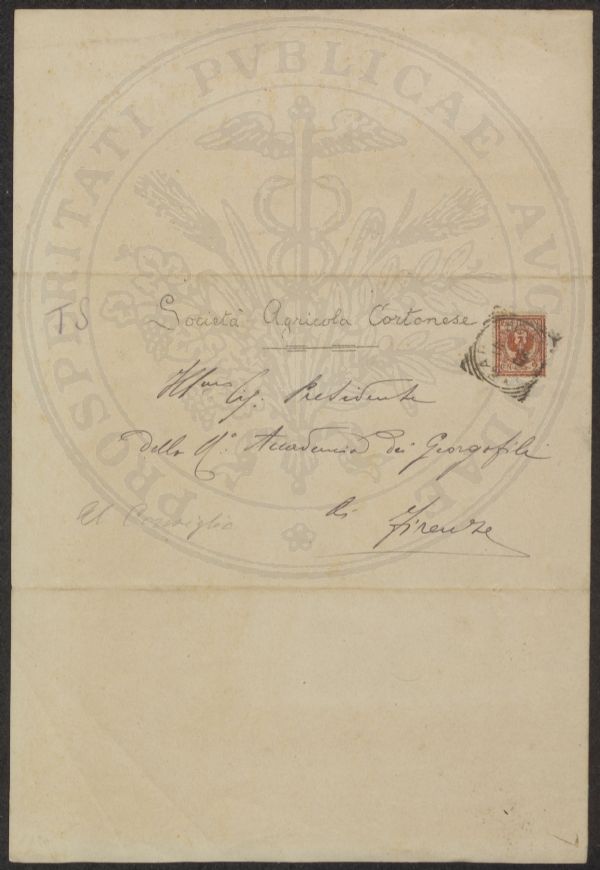 PROSPERITATI PVBLICAE AVGENDAE
TS
Società Agricola Cortonese
Ill.mo Sig. Presidente
della R.a Accademia dei Georgofili
di
Firenze
Al Consiglio